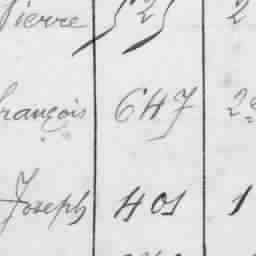 Pierre 525 2
François 647 2e
Joseph 401 1